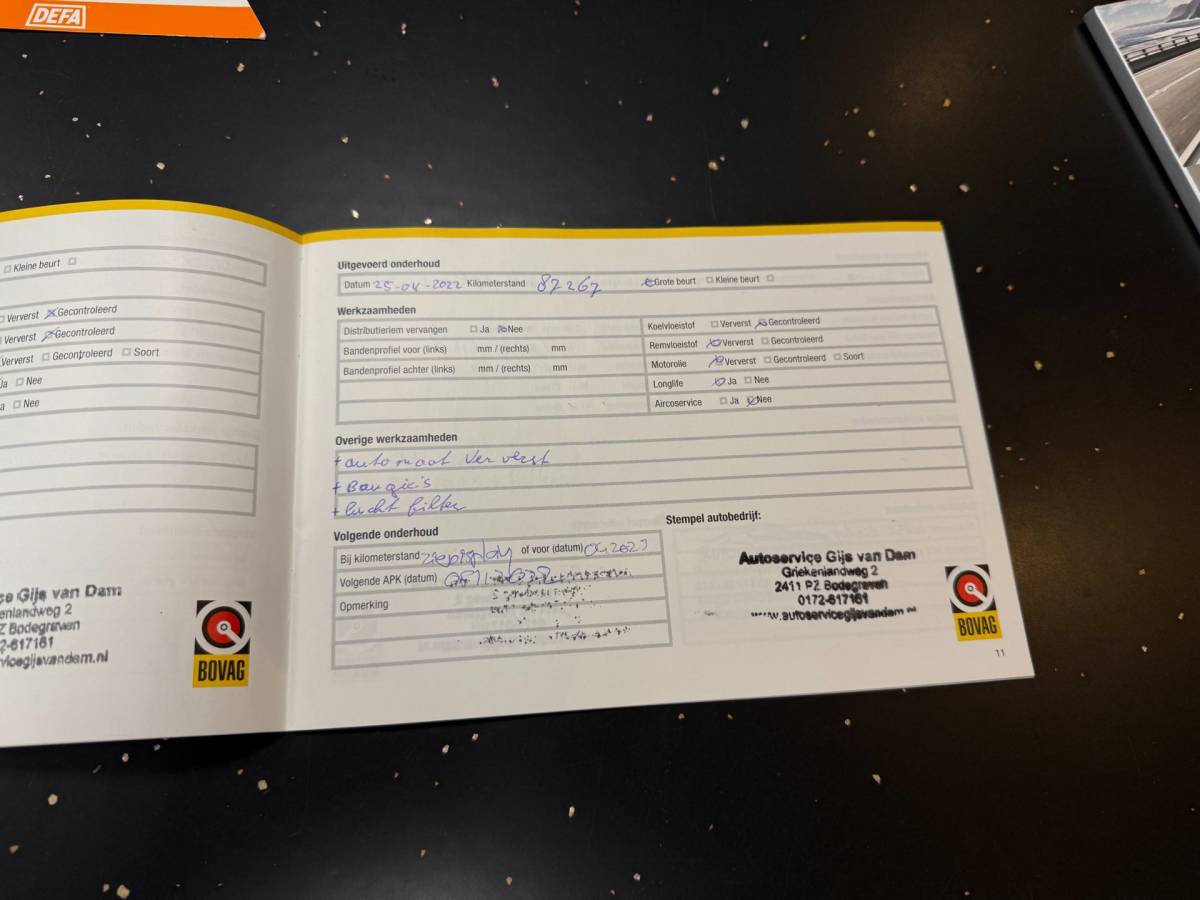 DEFA
Kleine beurt
Ververst Gecontroleerd
Ververst Gecontroleerd
Ververst Gecontroleerd Soort
Ja Nee
Nee
ce Gijs van Dam
enlandweg 2
Z Bodegraven
2-617161
vicegijsvandam.nl
BOVAG
Uitgevoerd onderhoud
Datum 25-04-2022 Kilometerstand 87267 Grote beurt Kleine beurt
Werkzaamheden
Distributieriem vervangen Ja Nee
Bandenprofiel voor (links) mm / (rechts) mm
Bandenprofiel achter (links) mm / (rechts) mm
Koelvloeistof Ververst Gecontroleerd
Remvloeistof Ververst Gecontroleerd
Motorolie Ververst Gecontroleerd Soort
Longlife Ja Nee
Aircoservice Ja Nee
Overige werkzaamheden
+ automaat ververst
+ Bougie's
+ lucht filter
Volgende onderhoud
Bij kilometerstand zie display of voor (datum) 04 2023
Volgende APK (datum)
Opmerking
Stempel autobedrijf:
Autoservice Gijs van Dam
Griekenlandweg 2
2411 PZ Bodegraven
0172-617161
www.autoservicegijsvandam.nl
BOVAG
11